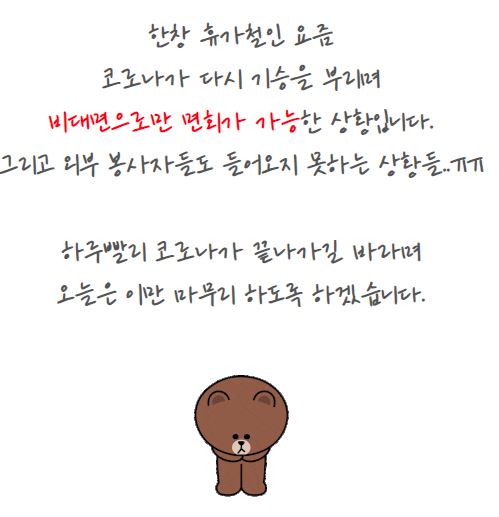 한창 휴가철인 요즘
코로나가 다시 기승을 부리며
비대면으로만 면회가 가능한 상황입니다.
그리고 외부 봉사자들도 들어오지 못하는 상황들..ㅠㅠ
하루빨리 코로나가 끝나가길 바라며
오늘은 이만 마무리 하도록 하겠습니다.